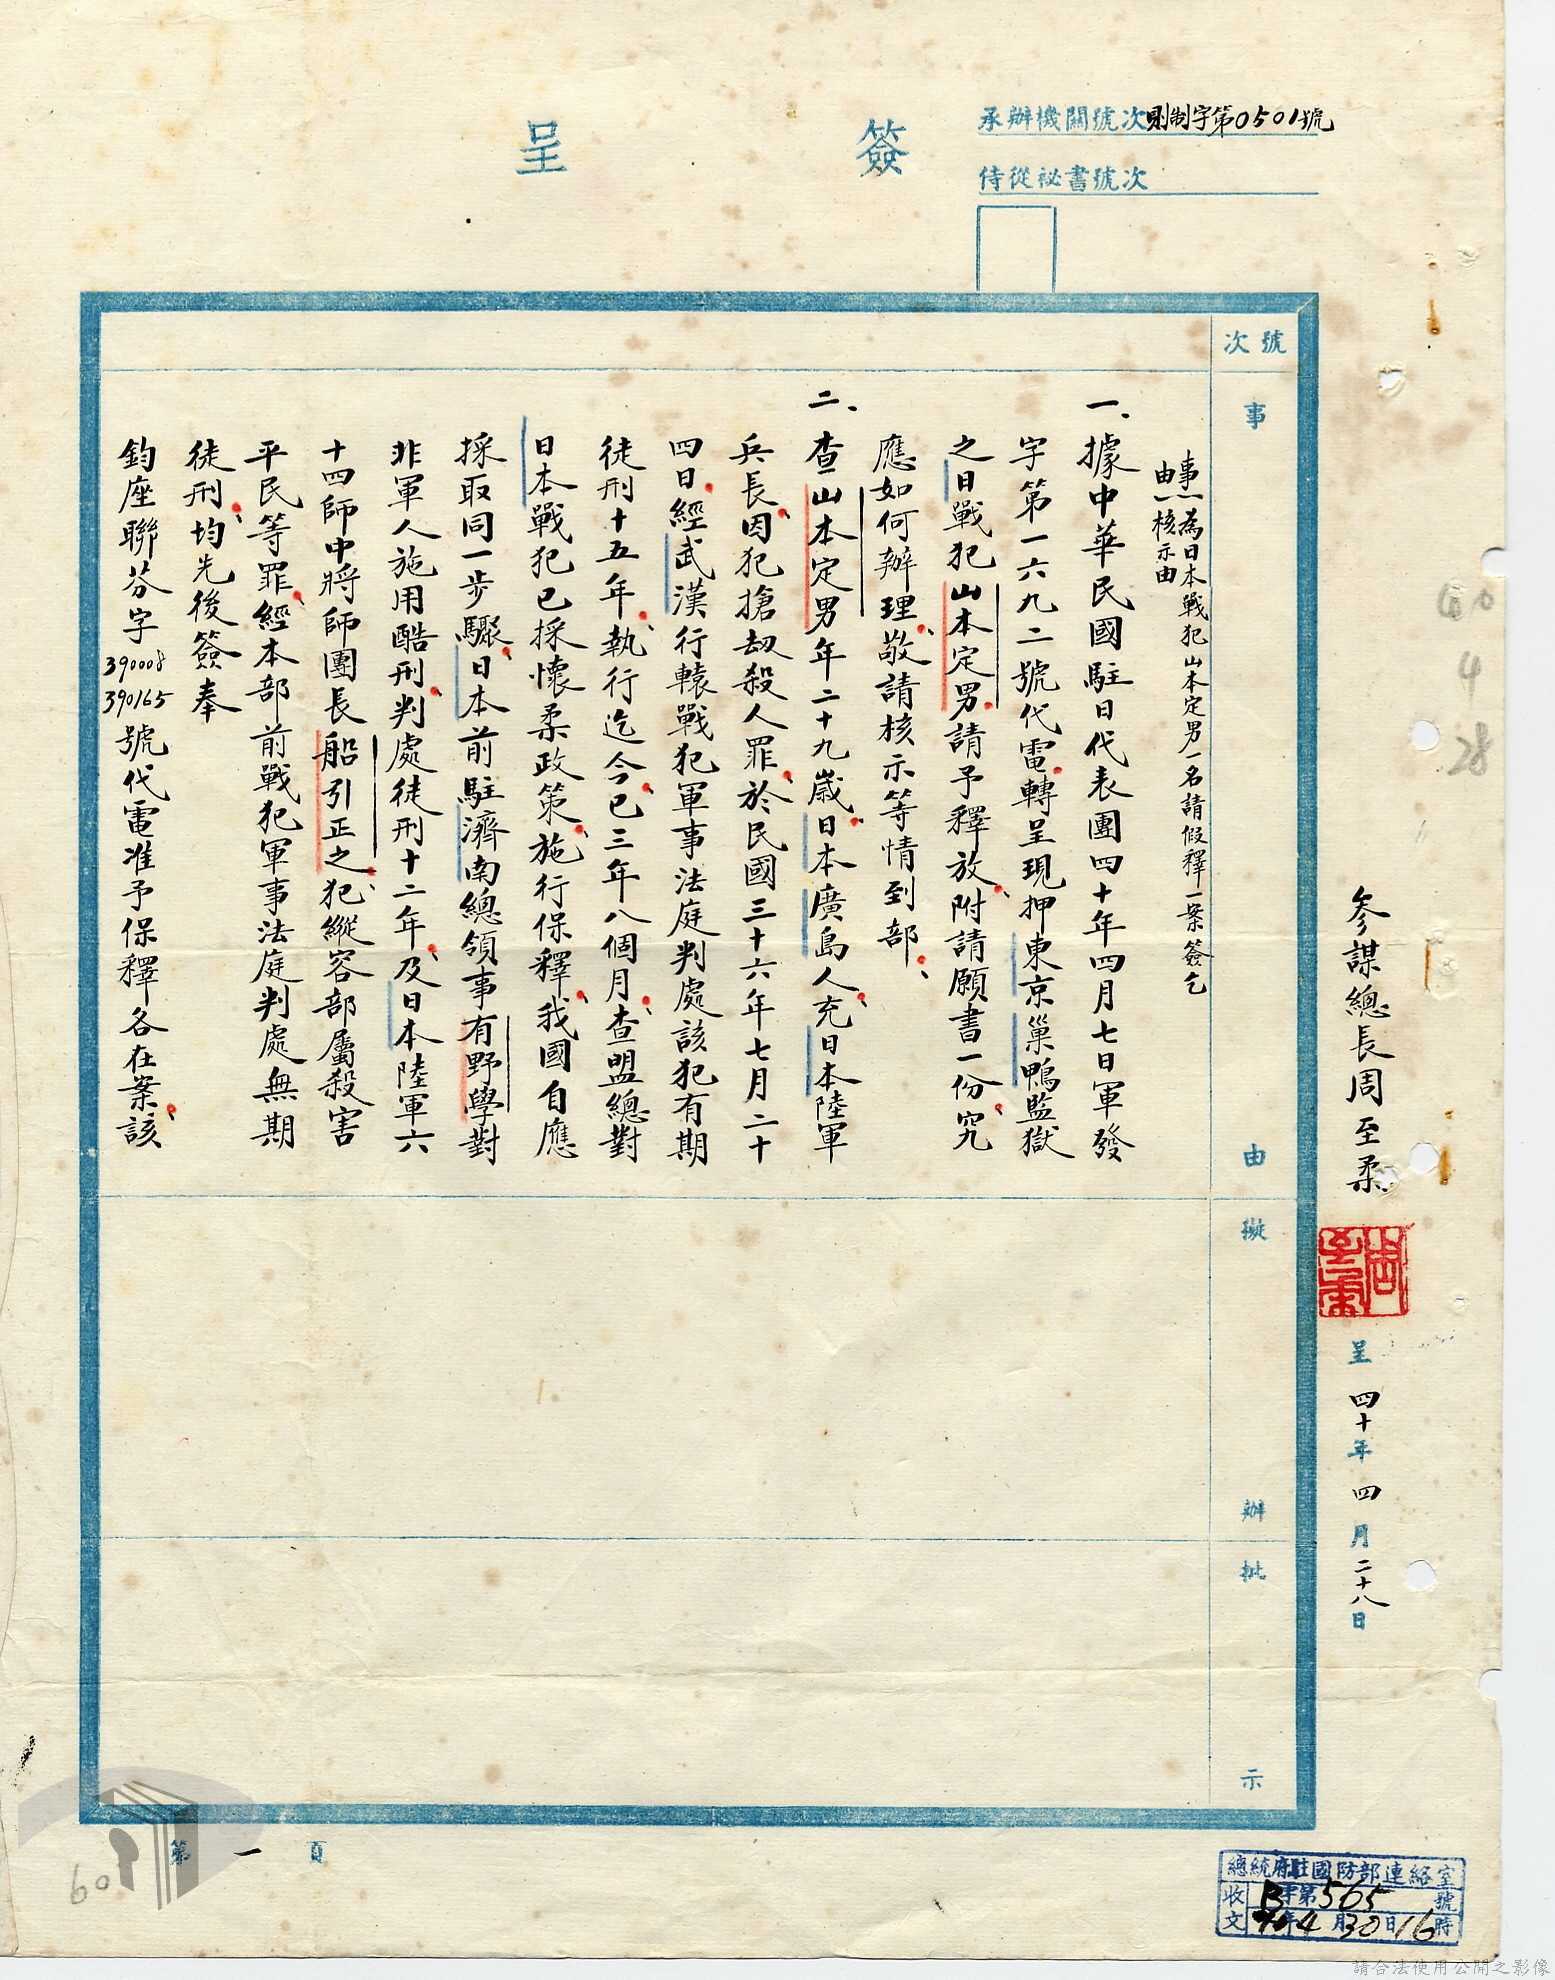 簽呈
承辦機關號次則制字第0501號
侍從祕書號次
參謀總長周至柔
周至柔
呈四十年四月二十八日
40
4
28
號次
事由
擬辦
批示
事由：為日本戰犯山本定男一名請假釋一案簽乞
核示由
一、據中華民國駐日代表團四十年四月七日軍發
字第一六九二號代電、轉呈現押東京巢鴨監獄
之日戰犯山本定男、請予釋放、附請願書一份、究
應如何辦理、敬請核示等情到部、
二、查山本定男年二十九歲、日本廣島人、充日本陸軍
兵長、因犯搶劫殺人罪、於民國三十六年七月二十
四日、經武漢行轅戰犯軍事法庭判處該犯有期
徒刑十五年、執行迄今、已三年八個月、查盟總對
日本戰犯已採懷柔政策、施行保釋、我國自應
採取同一步驟、日本前駐濟南總領事有野學對
非軍人施用酷刑、判處徒刑十二年、及日本陸軍六
十四師中將師團長船引正之、犯縱容部屬殺害
平民等罪、經本部前戰犯軍事法庭判處無期
徒刑、均先後簽奉
鈞座聯芬字390008 390165號代電准予保釋各在案、該
第一頁
60
總統府駐國防部連絡室
收文 B字第565號
40年4月30日16時
請合法使用公開之影像